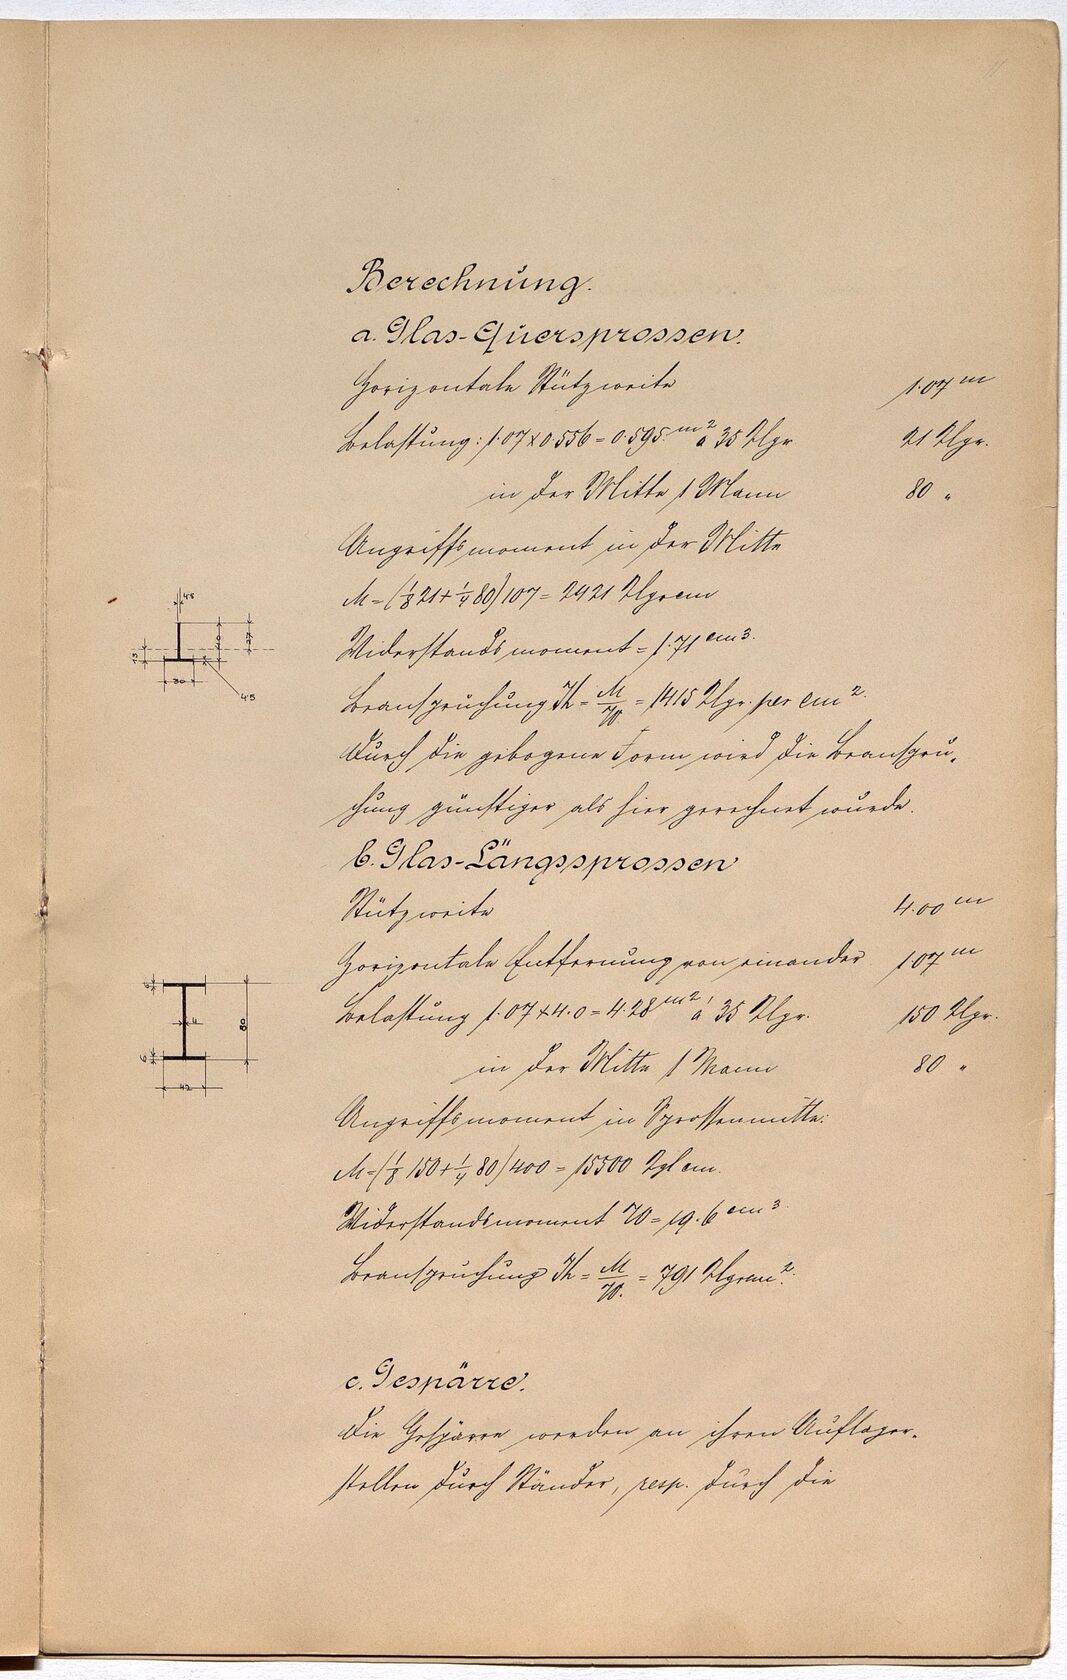 11
Berechnung.
a. Glas-Quersprossen.
Horizontale Stützweite 1.07 m
Belastung: 1.07 x 0.556 = 0.595 m² à 35 Klgr. 21 Klgr.
in der Mitte 1 Mann 80 "
Angriffsmoment in der Mitte
M = (1/8 21 + 1/4 80) 107 = 2421 Klgrcm
Widerstandsmoment = 1.71 cm³.
Beanspruchung K = M/W = 1415 Klgr. per cm².
Durch die gebogene Form wird die Beanspru-
chung günstiger als hier gerechnet wurde.
b. Glas-Längssprossen
Stützweite 4.00 m
Horizontale Entfernung von einander 1.07 m
Belastung 1.07 x 4.0 = 4.28 m² à 35 Klgr. 150 Klgr.
in der Mitte 1 Mann 80 "
Angriffsmoment in Sprossenmitte:
M = (1/8 150 + 1/4 80) 400 = 15500 Kglcm.
Widerstandsmoment W = 19.6 cm³.
Beanspruchung K = M/W = 791 Klgrcm².
c. Gespärre.
Die Gespärre werden an ihren Auflager-
stellen durch Ständer, resp. durch die
30
45
80
42
6
6